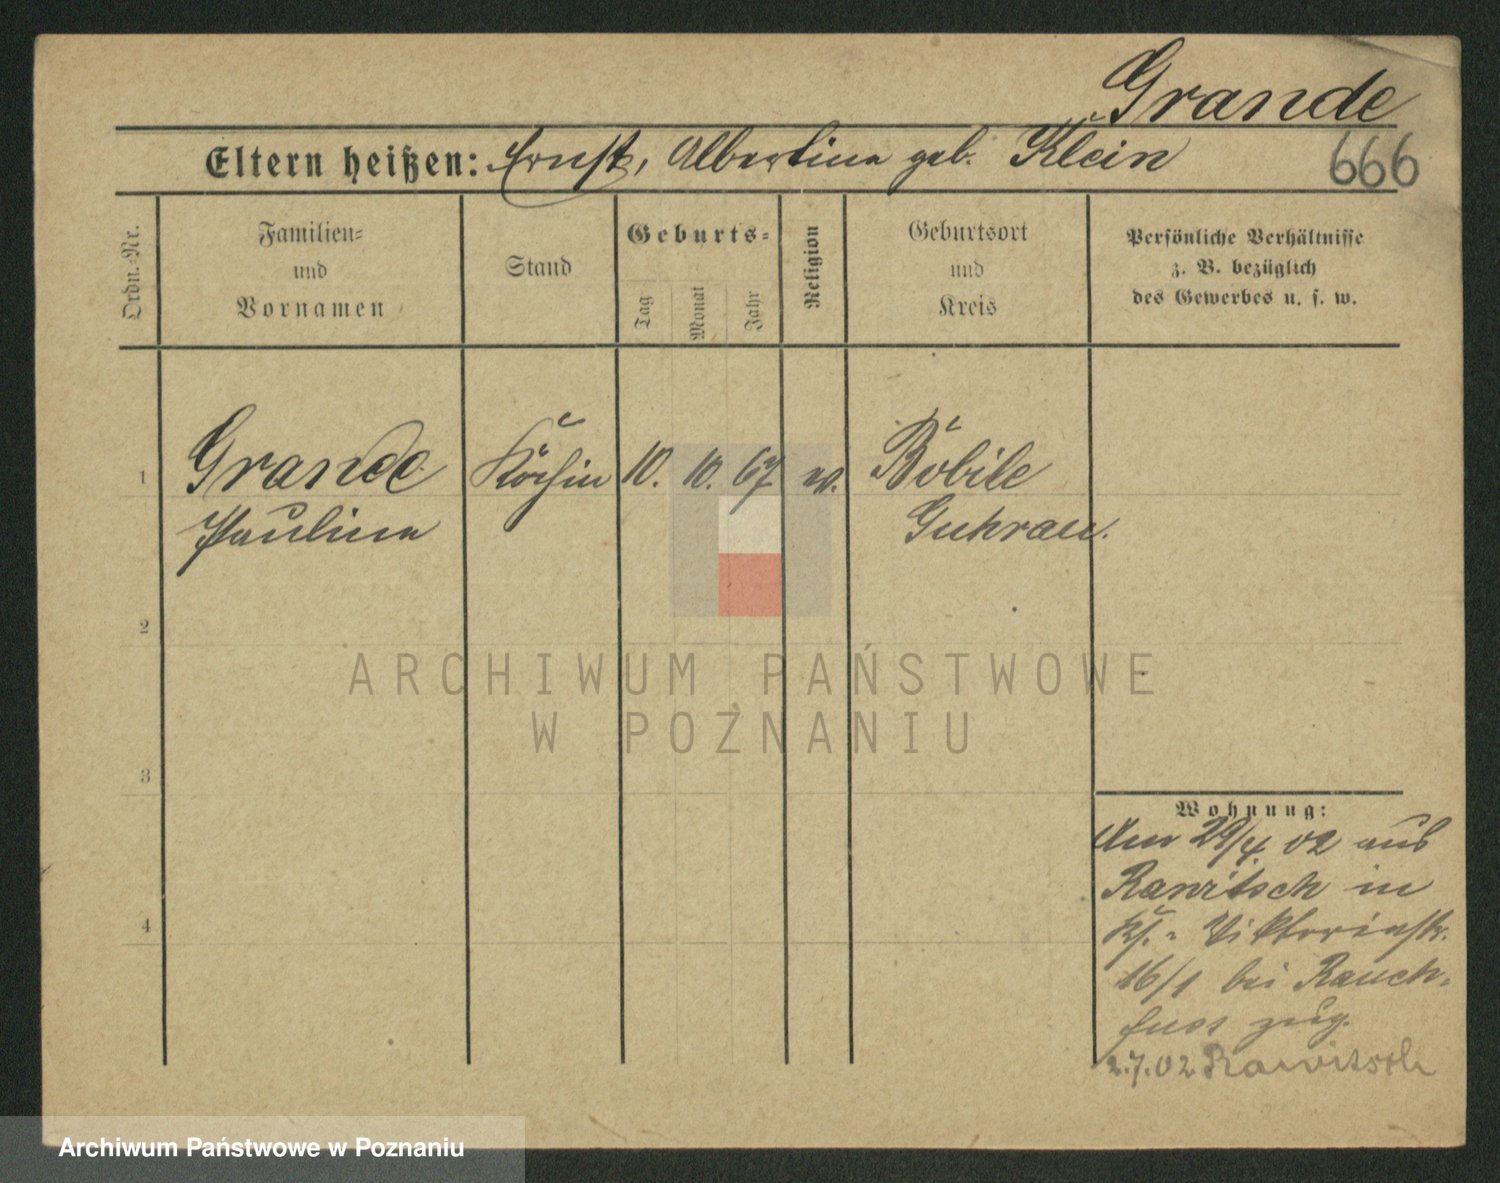 Grande
Eltern heißen: Ernst, Albertine geb. Klein
666
Ordn.-Nr.
Familien-
und
Vornamen
Stand
Geburts-
Tag
Monat
Jahr
Religion
Geburtsort
und
Kreis
Persönliche Verhältnisse
z. B. bezüglich
des Gewerbes u. s. w.
1 Grande Köchin 10. 10. 67 ev. Bobile
Pauline Guhrau.
2
3
4
ARCHIWUM PAŃSTWOWE
W POZNANIU
Wohnung:
Am 29/4. 02 aus
Rawitsch in
Viktoriastr.
16/1 bei Rauch-
fuss zug.
2.7.02 Rawitsch
Archiwum Państwowe w Poznaniu